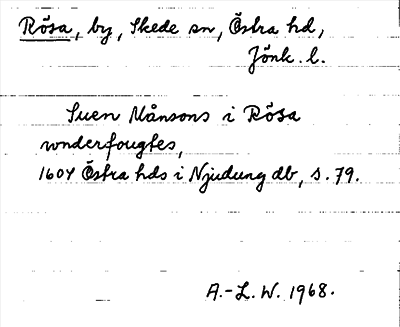 Rösa, by, Skede sn, Östra hd,
Jönk. l.
Suen Månsons i Rösa
vnderfougtes,
1604 Östra hds i Njudung db, s. 79.
A.-L. W. 1968.